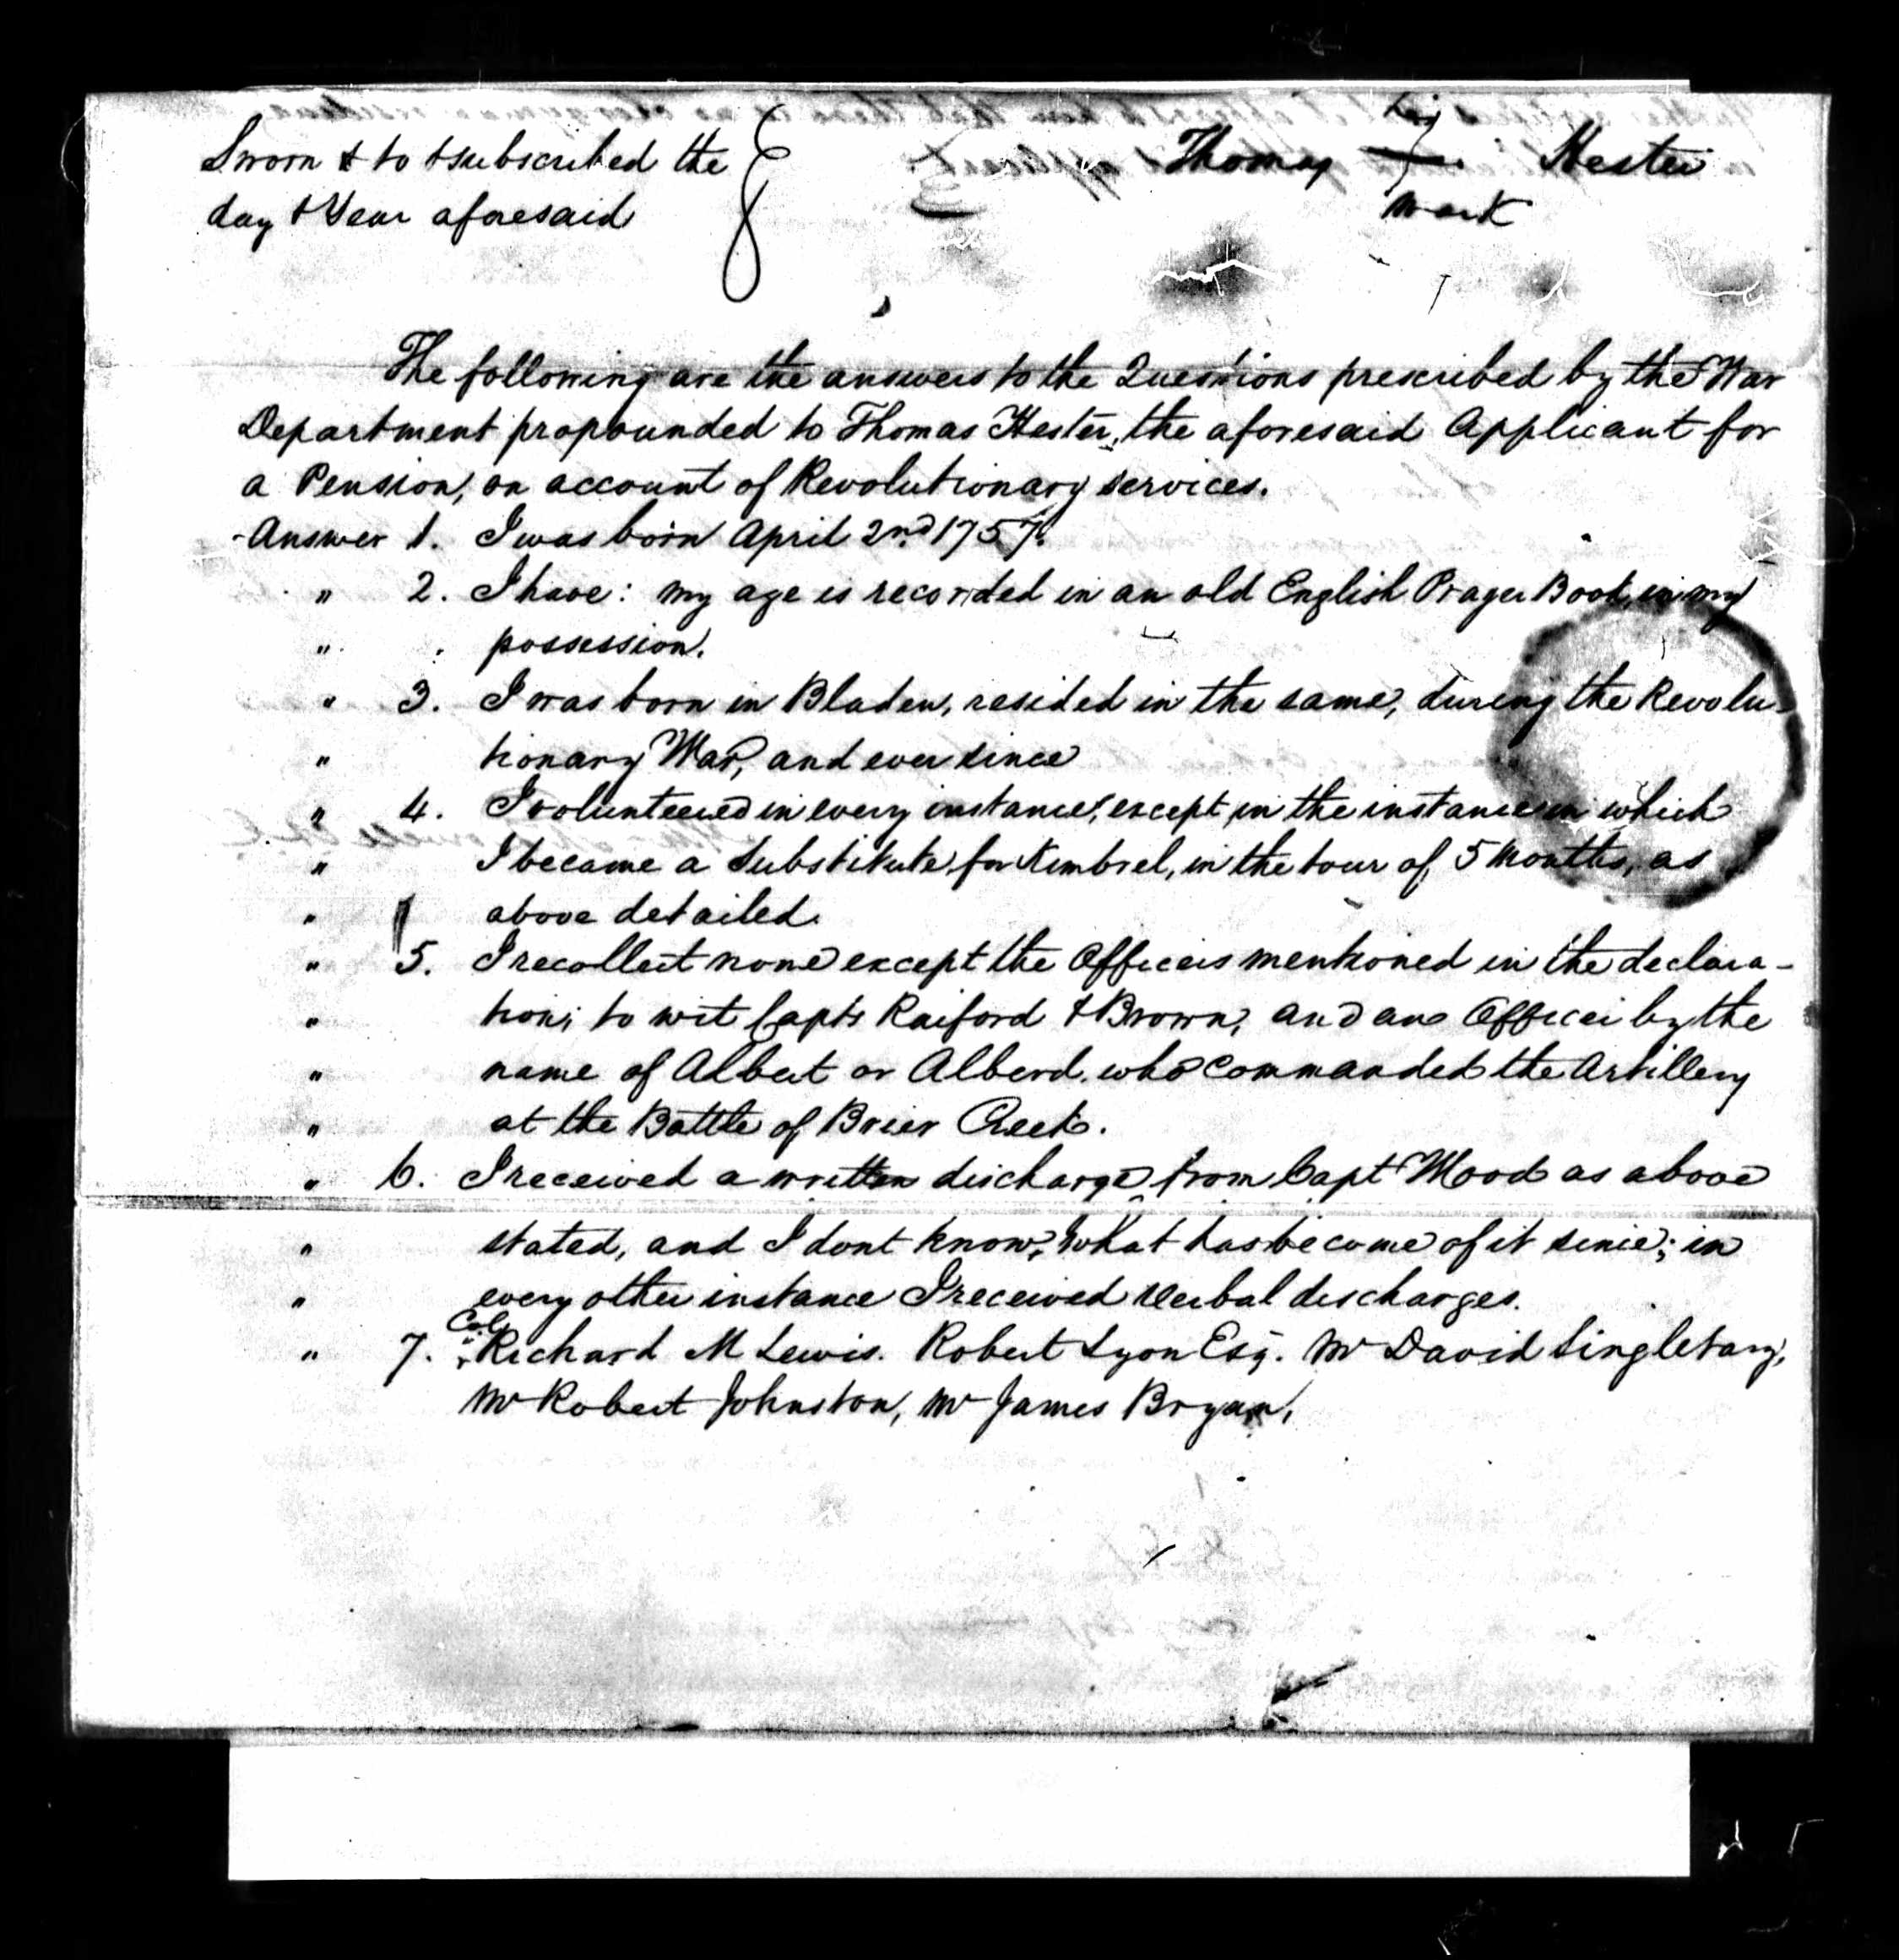 his
Sworn & to & subscribed the Thomas Hester
day & Year aforesaid mark
The following are the answers to the Questions prescribed by the War
Department propounded to Thomas Hester, the aforesaid Applicant for
a Pension, on account of Revolutionary services.
Answer 1. I was born April 2nd 1757.
" 2. I have: my age is recorded in an old English Prayer Book, in my
" possession.
" 3. I was born in Bladen, resided in the same, during the Revolu-
" tionary War, and ever since
" 4. I volunteered in every instance, except, in the instance in which
" I became a Substitute for Kimbrel, in the tour of 5 Months, as
" above detailed.
" 5. I recollect none except the Officers mentioned in the declara-
" tion; to wit Capts Raiford & Brown, and one Officer by the
" name of Albert or Alberd. who commanded the Artillery
" at the Battle of Brier Creek.
" 6. I received a written discharge from Capt Wood as above
" stated, and I dont know, what has become of it since; in
" every other instance I received Verbal discharges.
" 7. Col. Richard M Lewis. Robert Lyon Esq. Mr David Singletary,
Mr Robert Johnston, Mr James Bryan,